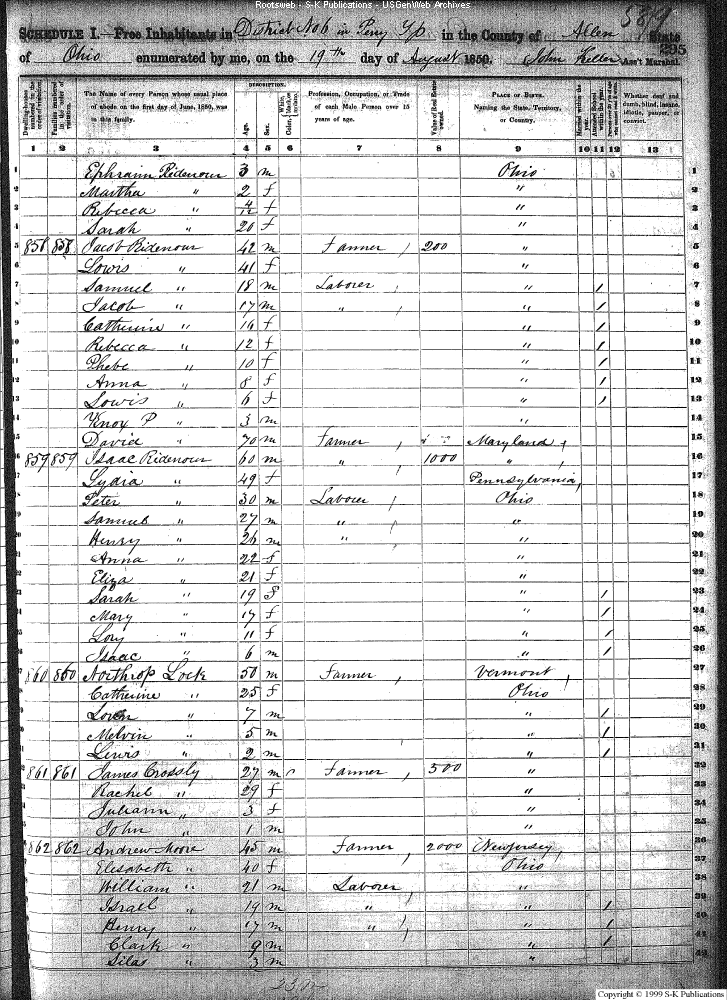 Rootsweb - S-K Publications - USGenWeb Archives
5819
SCHEDULE I.—Free Inhabitants in District No 6 in Perry T/p in the County of Allen State 295
of Ohio enumerated by me, on the 19th day of August 1850. John Keller Ass't Marshal.
Dwelling-houses numbered in the order of visitation. Families numbered in the order of visitation. The Name of every Person whose usual place of abode on the first day of June, 1850, was in this family. DESCRIPTION. Age. Sex. Color, White, black, or mulatto. Profession, Occupation, or Trade of each Male Person over 15 years of age. Value of Real Estate owned. PLACE OF BIRTH. Naming the State, Territory, or Country. Married within the year. Attended School within the year. Whether deaf and dumb, blind, insane, idiotic, pauper, or convict.
1 2 3 4 5 6 7 8 9 10 11 12 13
1 Ephraim Ridenour 3 m Ohio 1
2 Martha " 2 f " 2
3 Rebecca " 4/12 f " 3
4 Sarah " 20 f " 4
5 858 858 Jacob Ridenour 42 m Farmer 200 " 5
6 Lowis " 41 f " 6
7 Samuel " 18 m Laborer " / 7
8 Jacob " 17 m " " / 8
9 Catherine " 14 f " / 9
10 Rebecca " 12 f " / 10
11 Phebe " 10 f " / 11
12 Anna " 8 f " / 12
13 Lowis " 6 f " / 13
14 Knox P " 3 m " 14
15 David " 70 m Farmer Maryland 15
16 859 859 Isaac Ridenour 60 m " 1000 " 16
17 Lydia " 49 f Pennsylvania 17
18 Peter " 30 m Laborer Ohio 18
19 Samuel " 27 m " " 19
20 Henry " 26 m " " 20
21 Anna " 22 f " 21
22 Eliza " 21 f " 22
23 Sarah " 19 f " / 23
24 Mary " 17 f " / 24
25 Lory " 11 f " / 25
26 Isaac " 6 m " / 26
27 860 860 Northrop Lock 50 m Farmer Vermont 27
28 Catherine " 25 f Ohio 28
29 Loren " 7 m " / 29
30 Melvin " 5 m " / 30
31 Lewis " 2 m " / 31
32 861 861 James Crossly 27 m Farmer 500 " 32
33 Rachel " 29 f " 33
34 Juliann " 3 f " 34
35 John " 1 m " 35
36 862 862 Andrew Moore 45 m Farmer 2000 New Jersey 36
37 Elisabeth " 40 f Ohio 37
38 William " 21 m Laborer " 38
39 Israel " 19 m " " / 39
40 Henry " 17 m " " / 40
41 Clark " 9 m " / 41
42 Silas " 3 m " 42
Copyright © 1999 S-K Publications